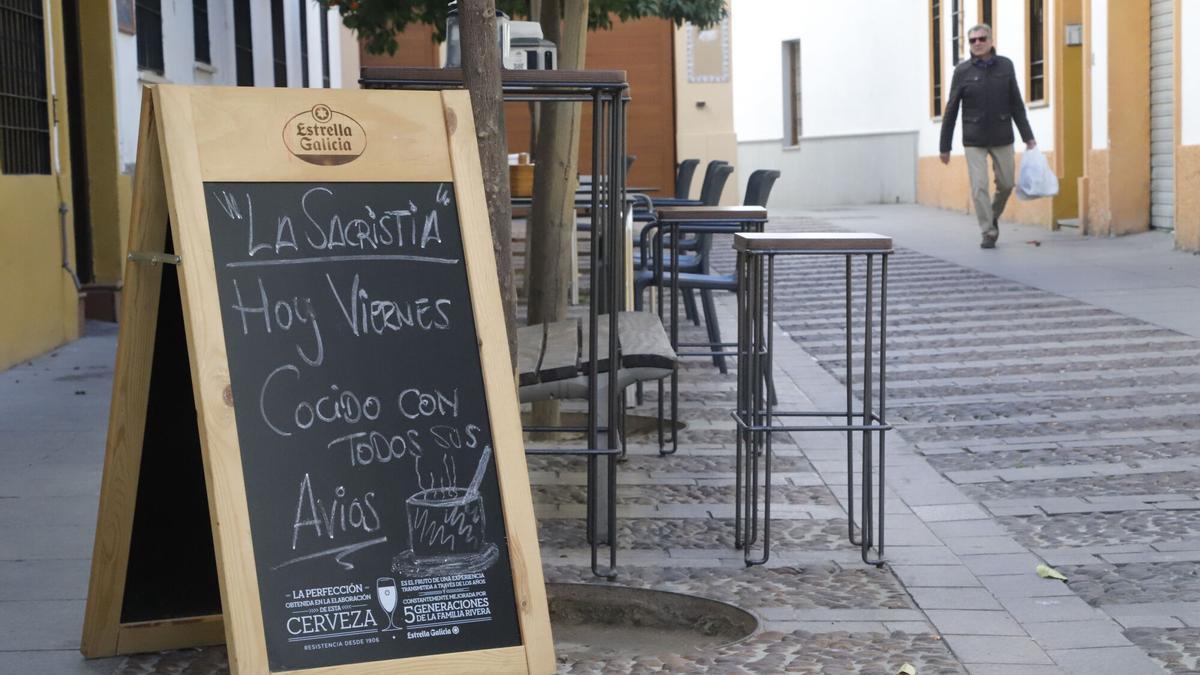 Estrella
Galicia
"La Sacristia"
Hoy Viernes
Cocido con
todos sus
Avios
LA PERFECCIÓN
OBTENIDA EN LA ELABORACIÓN
DE ESTA
CERVEZA
RESISTENCIA DESDE 1906
ES EL FRUTO DE UNA EXPERIENCIA
TRANSMITIDA A TRAVÉS DE LOS AÑOS
Y
CONSTANTEMENTE MEJORADA POR
5 GENERACIONES
DE LA FAMILIA RIVERA
Estrella Galicia